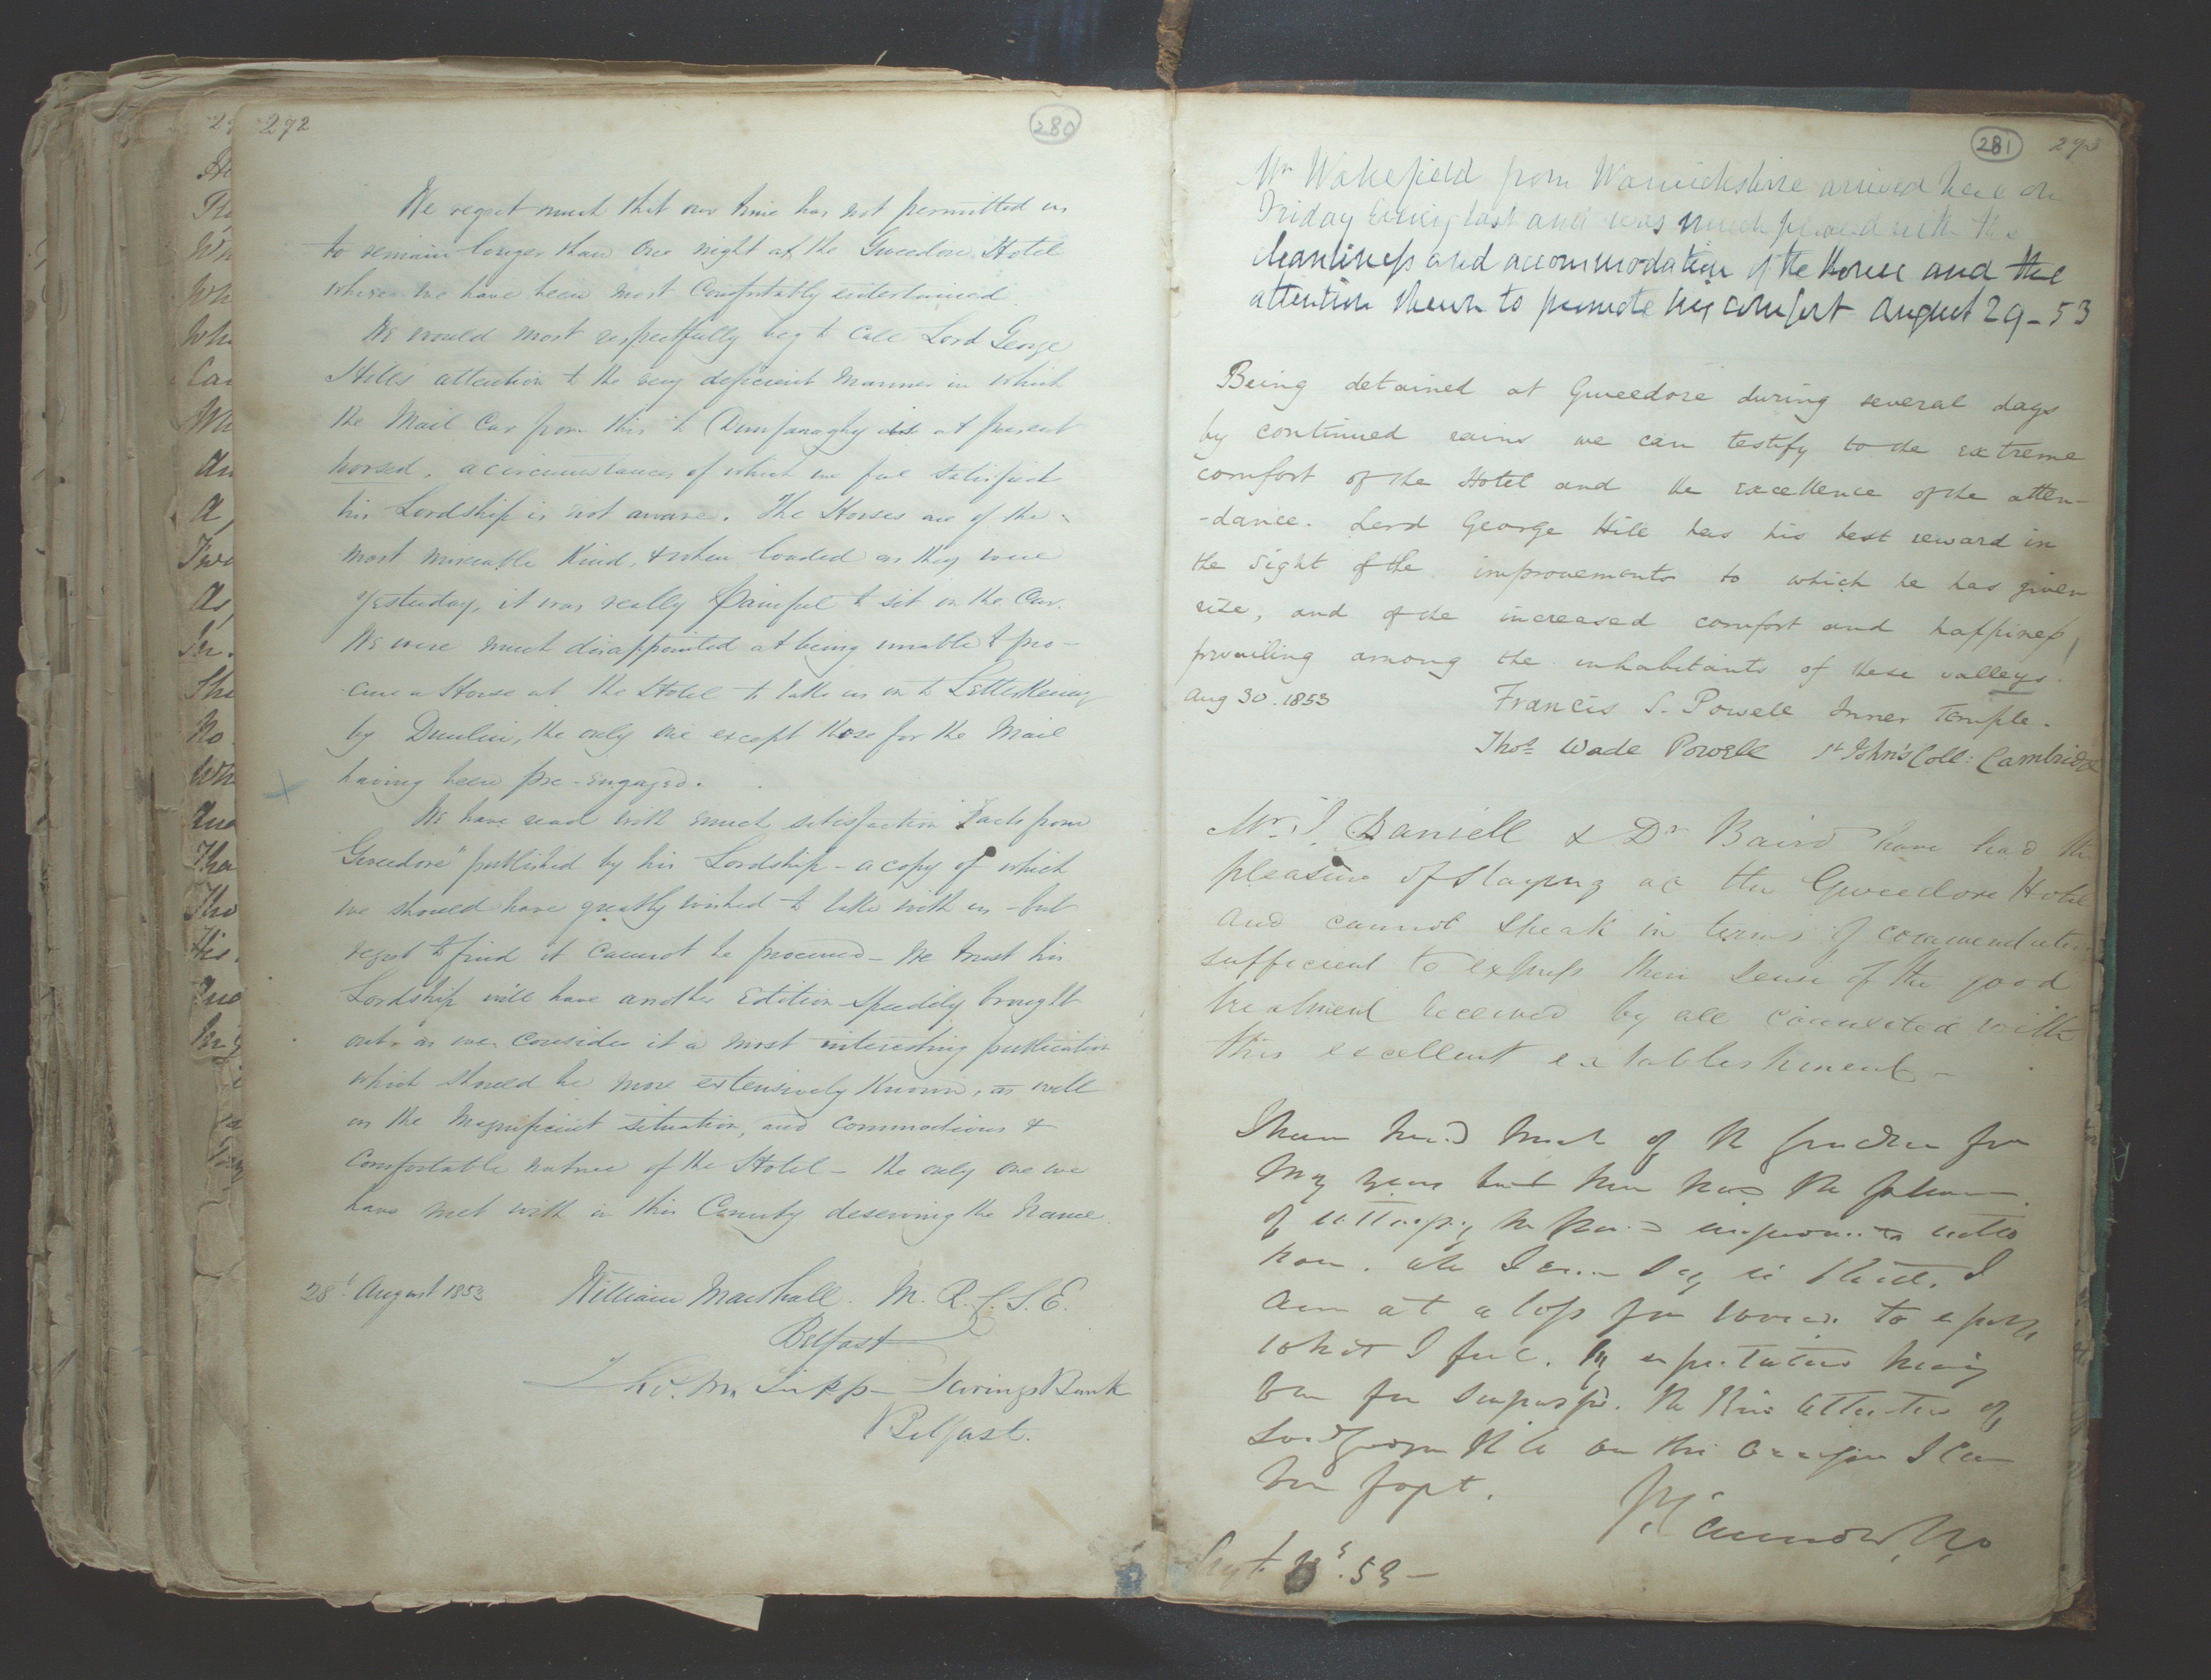 292
280
We regret much that our time has not permitted us
to remain longer than One night at the Gweedore Hotel
where we have been most Comfortably entertained.
We would most respectfully beg to Call Lord George
Hill's attention to the very deficient manner in which
the Mail Car from this to Dunfanaghy is at present
horsed, a circumstance of which we feel satisfied
his Lordship is not aware. The Horses are of the
most miserable Kind, & when loaded as they were
yesterday, it was really Painful to sit on the Car.
We were much disappointed at being unable to pro-
cure a Horse at the Hotel to take us on to Letterkenny
by Dunlui, the only one except those for the Mail
having been pre-engaged.
We have read with much satisfaction "Facts from
Gweedore" published by his Lordship - a copy of which
we should have greatly wished to take with us - but
regret to find it Cannot be procured - We trust his
Lordship will have another Edition speedily brought
out, as we consider it a most interesting publication
which should be more extensively Known, as well
as the Magnificent situation, and Commodious &
Comfortable nature of the Hotel - the only one we
have met with in this County deserving the Name.
28t August 1853 William Marshall. M.R.C.S.E.
Belfast
Savings Bank
Belfast.
281 293
Mr Wakefield from Warwickshire arrived here on
Friday Evening last and was much pleased with the
cleanliness and accommodation of the House and the
attention shewn to promote his comfort August 29-53
Being detained at Gweedore during several days
by continued rains we can testify to the extreme
comfort of the Hotel and the excellence of the atten-
-dance. Lord George Hill has his best reward in
the sight of the improvements to which he has given
rise, and of the increased comfort and happiness
prevailing among the inhabitants of these valleys.
Aug 30. 1853 Francis S. Powell Inner Temple.
Thos. Wade Powell St John's Coll: Cambridge
Mr. J. Daniell & Dr Baird have had the
pleasure of staying at the Gweedore Hotel
and cannot speak in terms of commendation
sufficient to express their sense of the good
treatment received by all connected with
this excellent establishment -
I have heard much of for
My years but have the
of
now.
am at a loss for words to express
what I feel. My expectations having
been far surpassed. The Kind attention of
Lord George Hill on this occasion I can
Sept 53 -